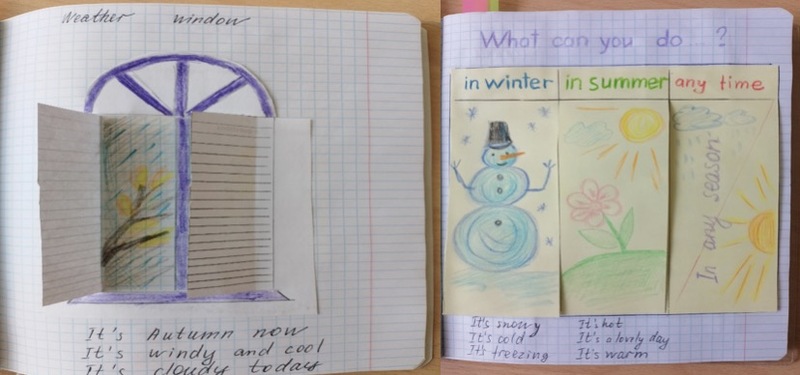 Weather window
It's Autumn now
It's windy and cool
It's cloudy today
What can you do...?
in winter
in summer
any time
In any season
It's snowy
It's cold
It's freezing
It's hot
It's a lovely day
It's warm